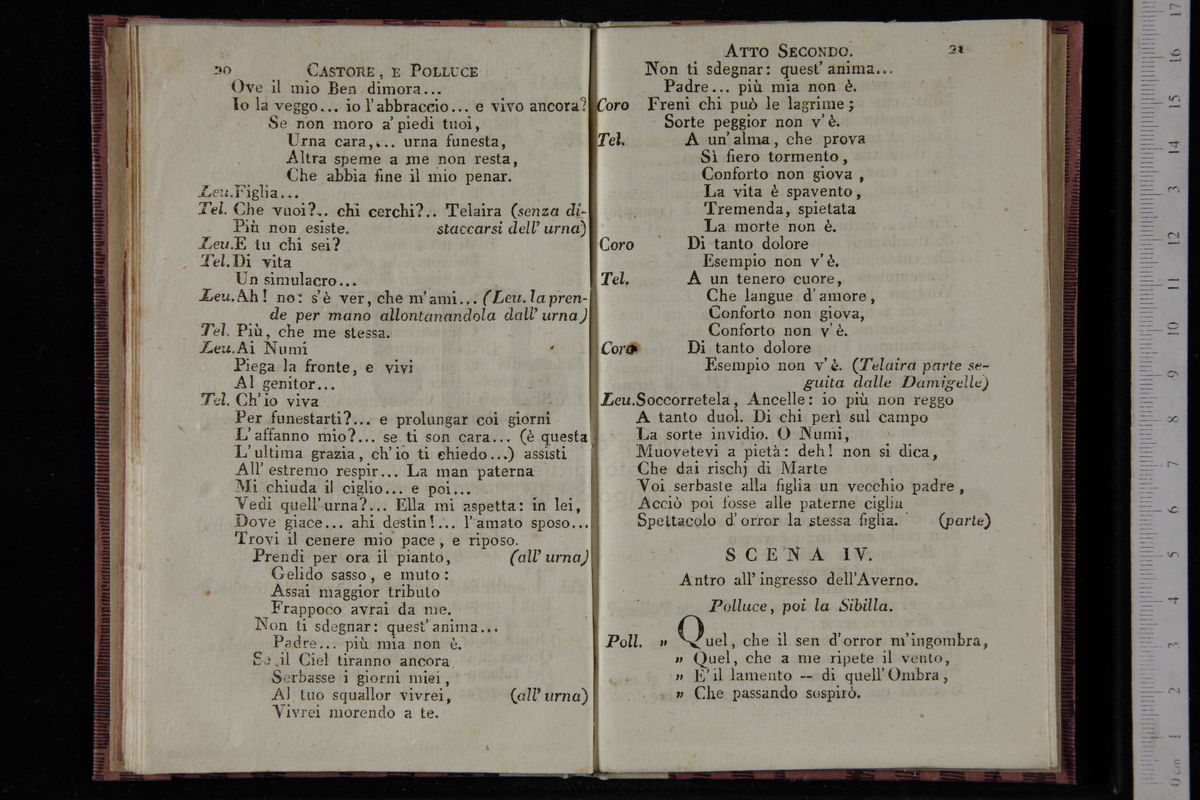 20 CASTORE, E POLLUCE
Ove il mio Ben dimora...
Io la veggo... io l'abbraccio... e vivo ancora?
Se non moro a' piedi tuoi,
Urna cara,... urna funesta,
Altra speme a me non resta,
Che abbia fine il mio penar.
Leu. Figlia...
Tel. Che vuoi?.. chi cerchi?.. Telaira (senza di-
Più non esiste. staccarsi dell' urna)
Leu. E tu chi sei?
Tel. Di vita
Un simulacro...
Leu. Ah! no: s'è ver, che m'ami... (Leu. la pren-
de per mano allontanandola dall' urna)
Tel. Più, che me stessa.
Leu. Ai Numi
Piega la fronte, e vivi
Al genitor...
Tel. Ch'io viva
Per funestarti?... e prolungar coi giorni
L'affanno mio?... se ti son cara... (è questa
L'ultima grazia, ch'io ti chiedo...) assisti
All' estremo respir... La man paterna
Mi chiuda il ciglio... e poi...
Vedi quell'urna?... Ella mi aspetta: in lei,
Dove giace... ahi destin!... l'amato sposo...
Trovi il cenere mio pace, e riposo.
Prendi per ora il pianto, (all' urna)
Gelido sasso, e muto:
Assai maggior tributo
Frappoco avrai da me.
Non ti sdegnar: quest'anima...
Padre... più mia non è.
Se il Ciel tiranno ancora
Serbasse i giorni miei,
Al tuo squallor vivrei, (all' urna)
Vivrei morendo a te.
ATTO SECONDO. 21
Non ti sdegnar: quest' anima...
Padre... più mia non è.
Coro Freni chi può le lagrime;
Sorte peggior non v'è.
Tel. A un'alma, che prova
Sì fiero tormento,
Conforto non giova,
La vita è spavento,
Tremenda, spietata
La morte non è.
Coro Di tanto dolore
Esempio non v'è.
Tel. A un tenero cuore,
Che langue d'amore,
Conforto non giova,
Conforto non v'è.
Coro Di tanto dolore
Esempio non v'è. (Telaira parte se-
guita dalle Damigelle)
Leu. Soccorretela, Ancelle: io più non reggo
A tanto duol. Di chi perì sul campo
La sorte invidio. O Numi,
Muovetevi a pietà: deh! non si dica,
Che dai rischj di Marte
Voi serbaste alla figlia un vecchio padre,
Acciò poi fosse alle paterne ciglia
Spettacolo d'orror la stessa figlia. (parte)
SCENA IV.
Antro all'ingresso dell'Averno.
Polluce, poi la Sibilla.
Poll. „ Quel, che il sen d'orror m'ingombra,
„ Quel, che a me ripete il vento,
„ E' il lamento -- di quell'Ombra,
„ Che passando sospirò.
0 cm 1 2 3 4 5 6 7 8 9 10 11 12 13 14 15 16 17